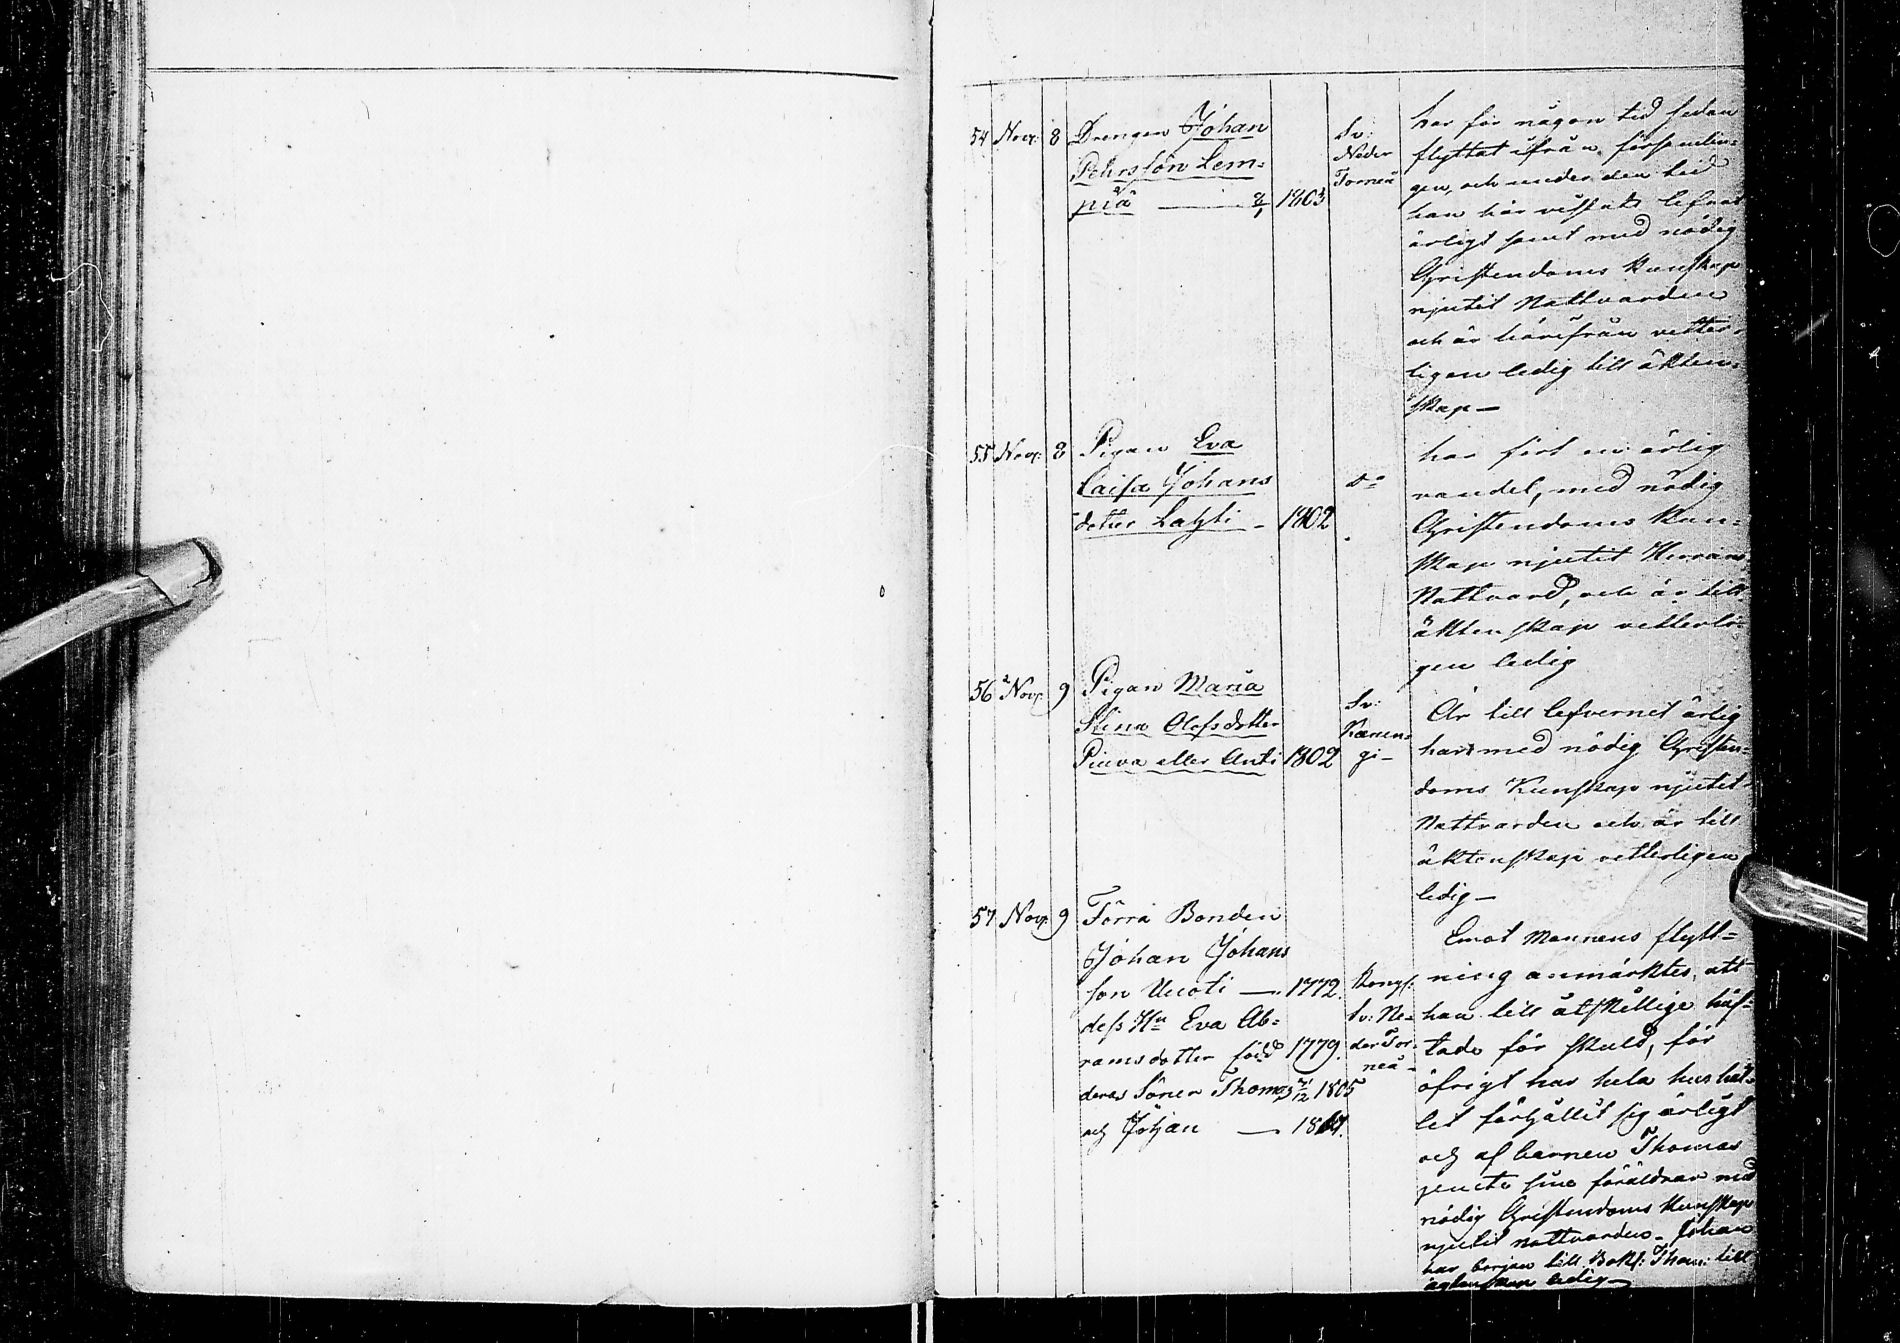 54 Nov: 8 Drengen Johan
Pehrsson Lem-
piä — 8/1 1803
Sv:
Neder
Torneå
har för någon tid sedan
flyttat ifrån församlin-
gen, och under den tid
han här vistats lefvat
ärligt samt med nödig
Christendoms kunskap
njutit Nattvarden
och är härifrån vetter-
ligen ledig till äkten-
skap —
55 Nov: 8 Pigan Eva
Caisa Johans
dotter Lahti - 1802
do
har fört en ärlig
vandel, med nödig
Christendoms kun-
skap njutit Herrans
Nattvard, och är till
äktenskap vetterli-
gen ledig
56 Nov: 9 Pigan Maria
Stina Olofsdotter
Piuva eller Anti 1802
Sv:
Karun-
gi -
Är till lefvernet ärlig
har med nödig Christen-
doms Kunskap njutit
Nattvarden och är till
äktenskap vetterligen
ledig —
57 Nov: 9 Förra Bonden
Johan Johans
son Uuoti — 1772.
dess Hu Eva Ab-
ramsdotter född 1779.
deras Söner Thomas 21/12 1805
och Johan — 18
Sv: Ne-
der Tor-
neå -
Emot Mannens flytt-
ning anmärktes, att
han till åtskillige häf-
tade för skuld, för
öfrigt har hela hushål-
let förhållit sig ärligt
och af barnen Thomas
jemte sine föräldrar med
nödig Christendoms kunskap
njutit nattvarden. Johan
har början till Bokl: Thom: till
äktenskap ledig —